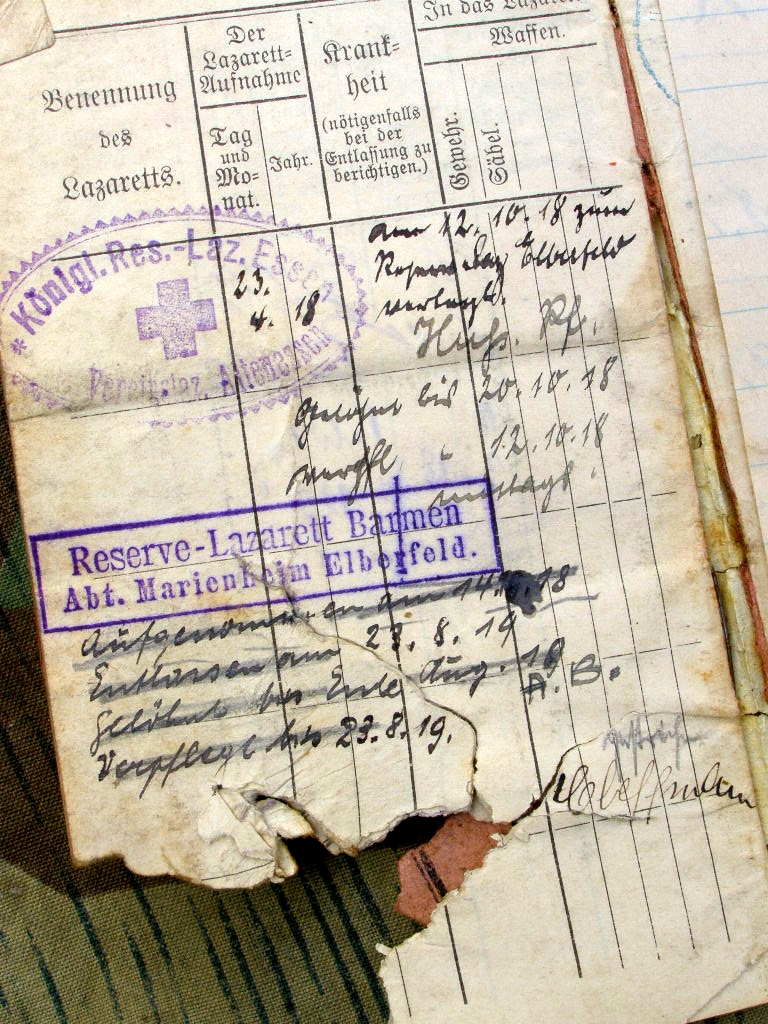 In das Lazarett
Waffen.
Benennung
des
Lazaretts.
Der
Lazarett-
Aufnahme
Tag
und
Mo-
nat.
Jahr.
Krank-
heit
(nötigenfalls
bei der
Entlassung zu
berichtigen.)
Gewehr.
Säbel.
* Königl. Res.-Laz. Essen
Vereinslaz. Altenessen
23.
4. 18
am 12. 10. 18 zum
Reserve Laz Elberfeld
verlegt.
gelöhnt bis 20. 10. 18
verpfl. " 12. 10. 18
mittags
Reserve-Lazarett Barmen
Abt. Marienheim Elberfeld.
Aufgenommen am 14. 18
Entlassen am 23. 8. 19
Gelöhnt bis Ende Aug. 19
Verpflegt bis 23. 8. 19.
A. B.